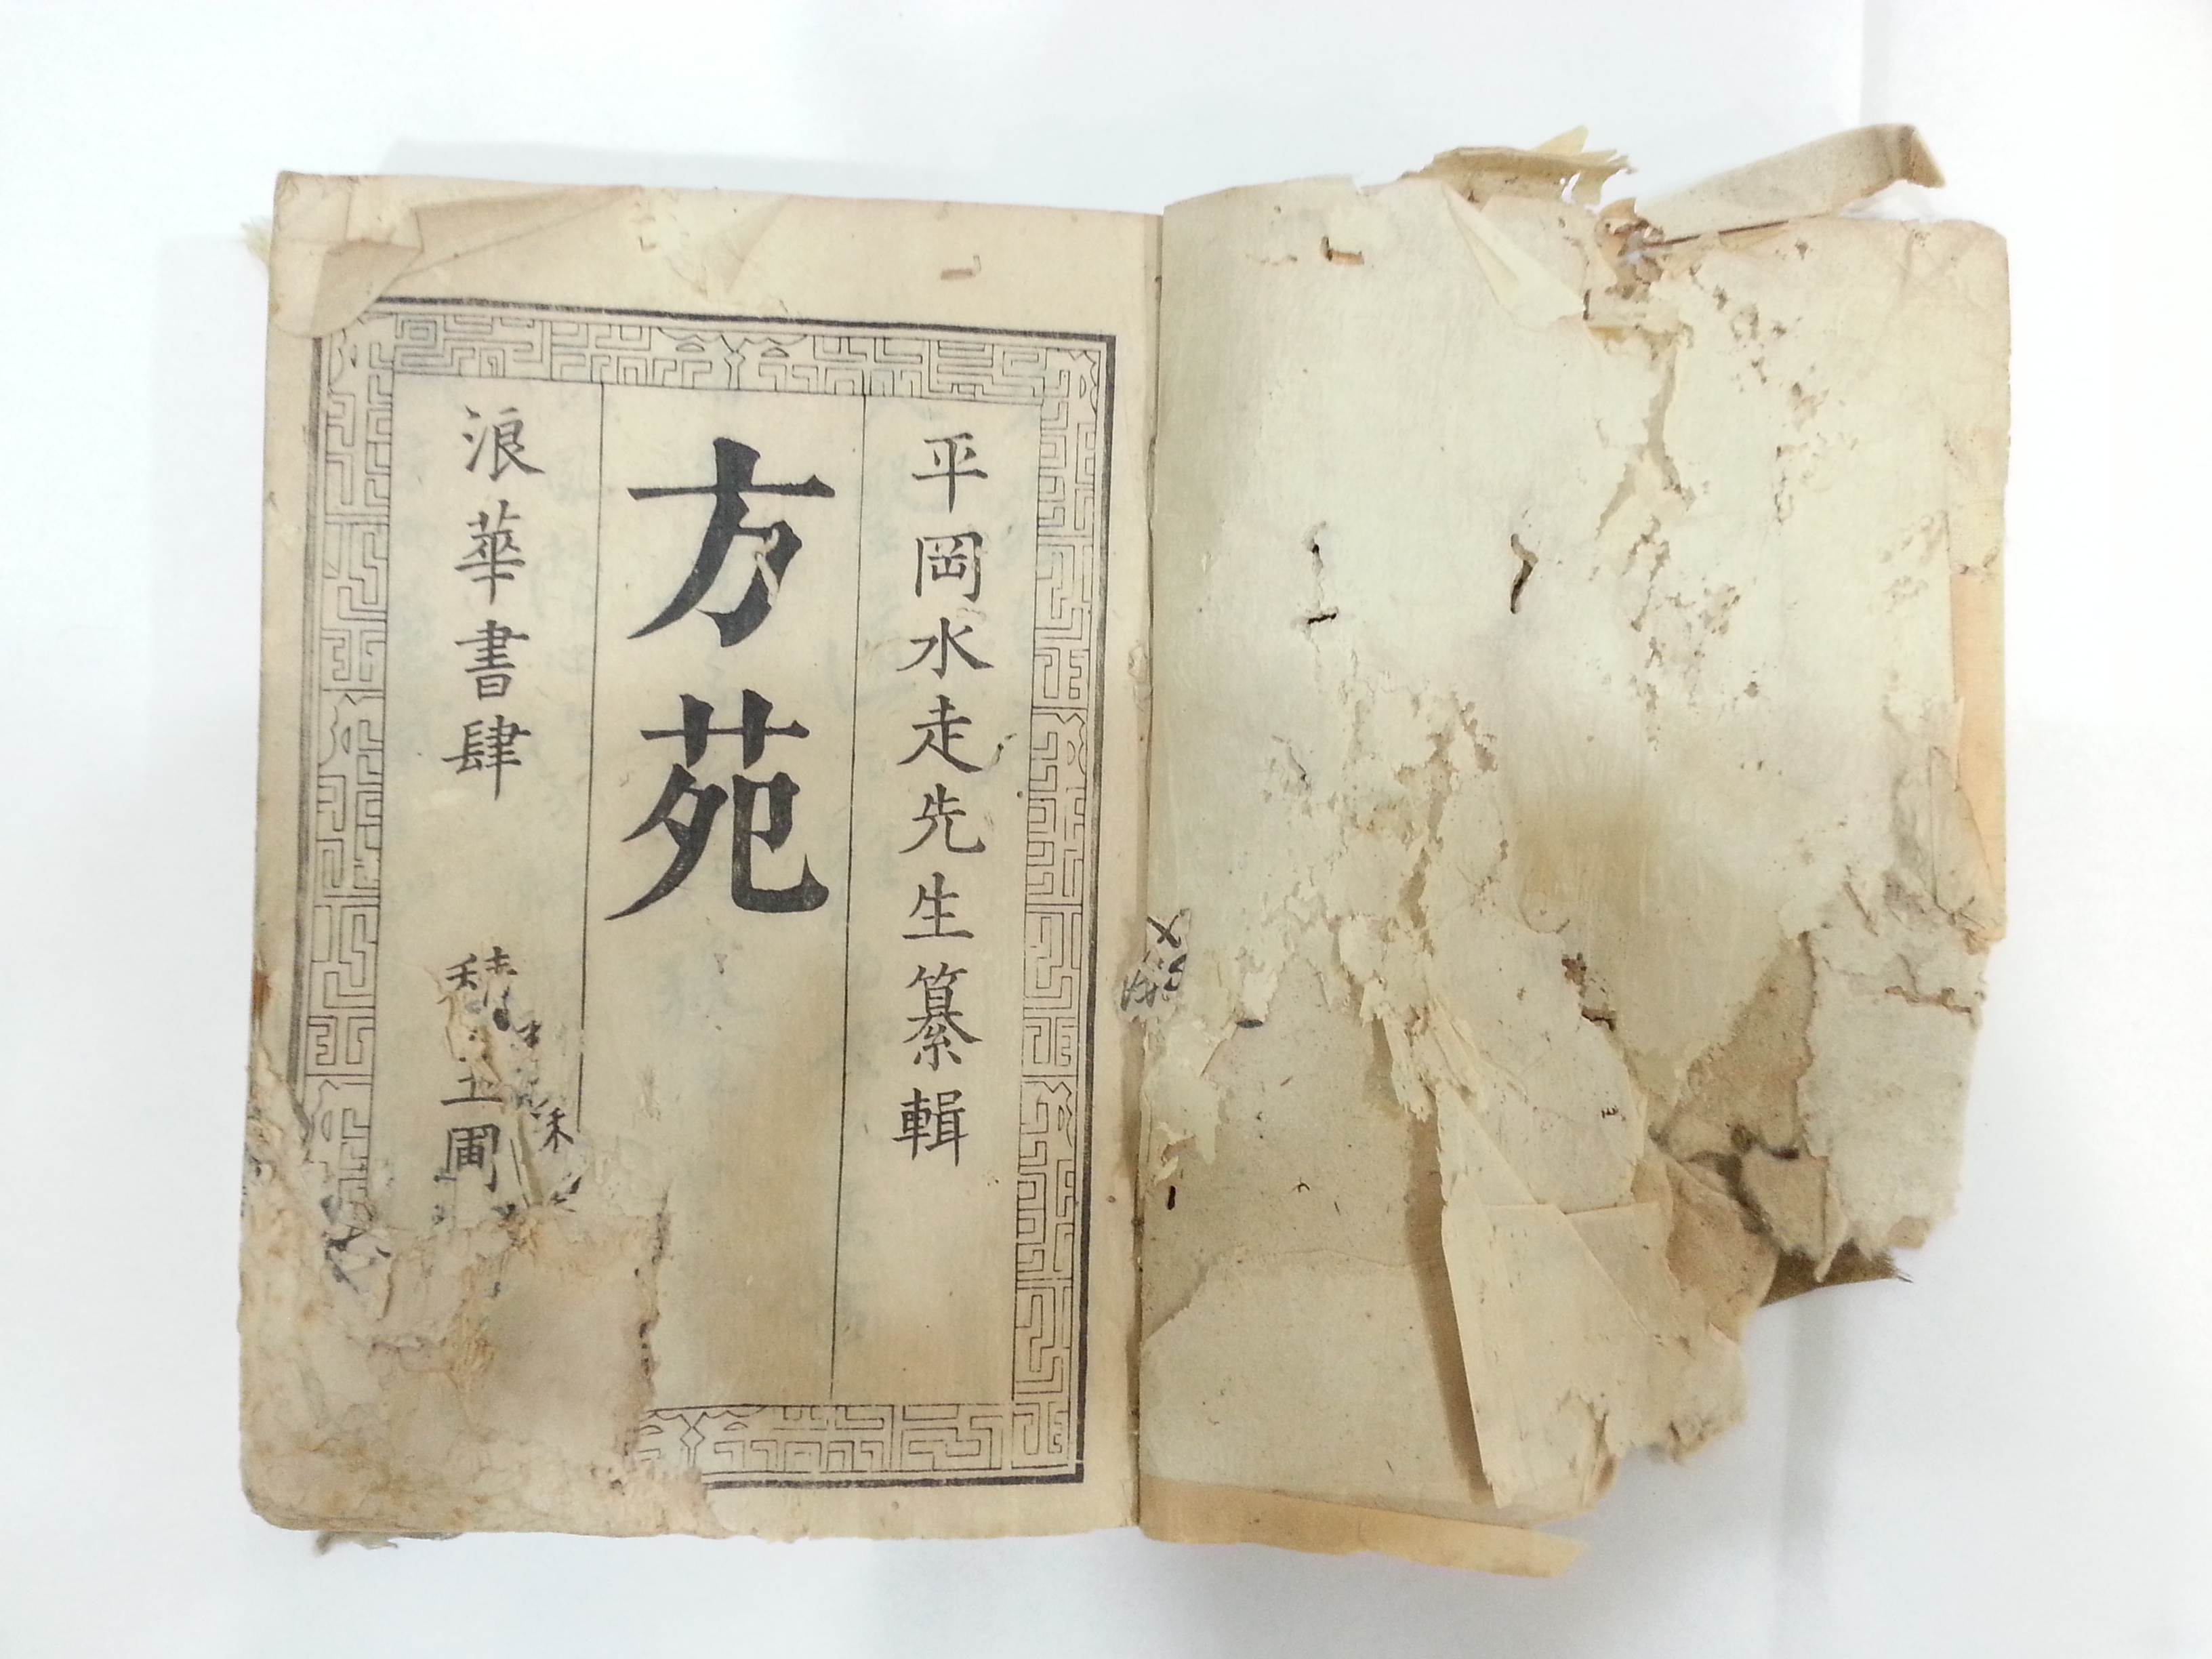 平岡水走先生纂輯
方苑
浪華書肆
圃